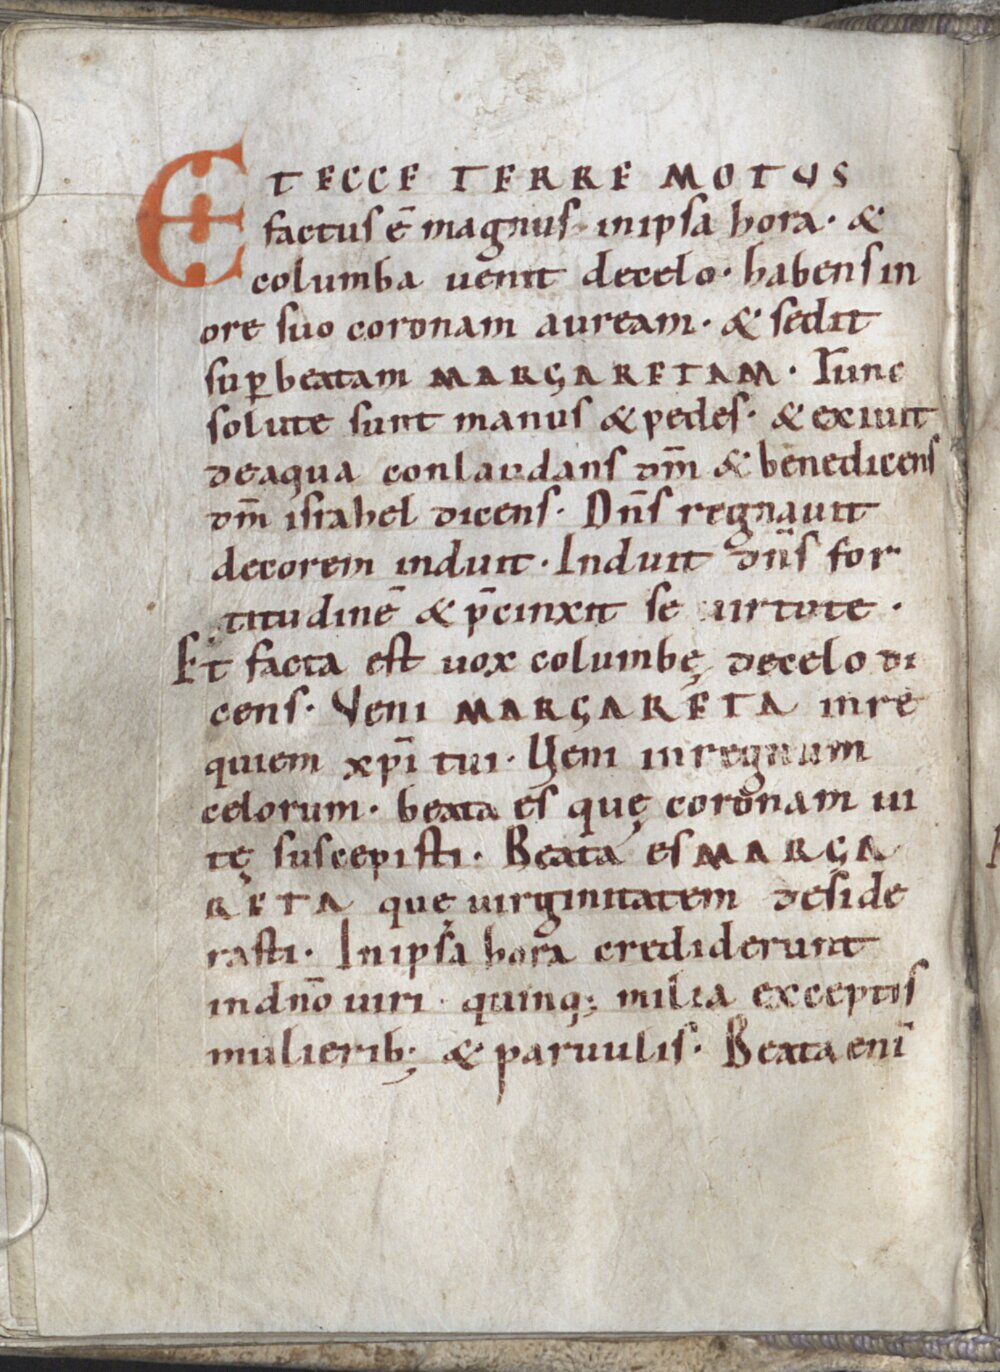 ET ECCE TERRE MOTUS
factus ē magnus inipsa hora · &
columba uenit decelo · habens in
ore suo coronam auream · & sedit
suꝑ beatam MARGARETAM · Tunc
solute sunt manus & pedes · & exiuit
deaqua conlaudans dm̄ & benedicens
dm̄ israhel dicens · Dn̄s regnauit
decorem induit · Induit dn̄s for
titudinē & p̄cinxit se uirtute ·
Et facta est uox columbę decelo di
cens · Veni MARGARETA inre
quiem xp̄i tui · Veni inregnum
celorum · beata es quę coronam ui
tę suscepisti · Beata es MARGA
RETA quę uirginitatem deside
rasti · Inipsa hora crediderunt
indn̄o uiri · quinq; milia exceptis
mulierib; & paruulis · Beata enī